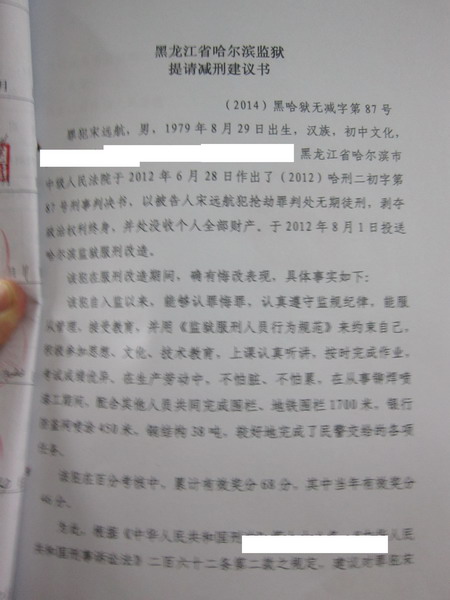 黑龙江省哈尔滨监狱
提请减刑建议书
(2014)黑哈狱无减字第87号
罪犯宋远航，男，1979年8月29日出生，汉族，初中文化，
黑龙江省哈尔滨市
中级人民法院于2012年6月28日作出了(2012)哈刑二初字第
87号刑事判决书，以被告人宋远航犯抢劫罪判处无期徒刑，剥夺
政治权利终身，并处没收个人全部财产。于2012年8月1日投送
哈尔滨监狱服刑改造。
该犯在服刑改造期间，确有悔改表现，具体事实如下：
该犯自入监以来，能够认罪悔罪，认真遵守监规纪律，能服
从管理，接受教育，并用《监狱服刑人员行为规范》来约束自己。
积极参加思想、文化、技术教育，上课认真听讲，按时完成作业，
考试成绩优异。在生产劳动中，不怕脏、不怕累，在从事铆焊喷
漆工期间，配合其他人员共同完成围栏、地铁围栏1700米，银行
防盗网喷涂450米，钢结构38吨，较好地完成了民警交给的各项
任务。
该犯在百分考核中，累计有效奖分68分，其中当年有效奖分
46分。
为此，根据《中华人民共和国刑 人民
共和国刑事诉讼法》二百六十二条第二款之规定，建议对罪犯宋